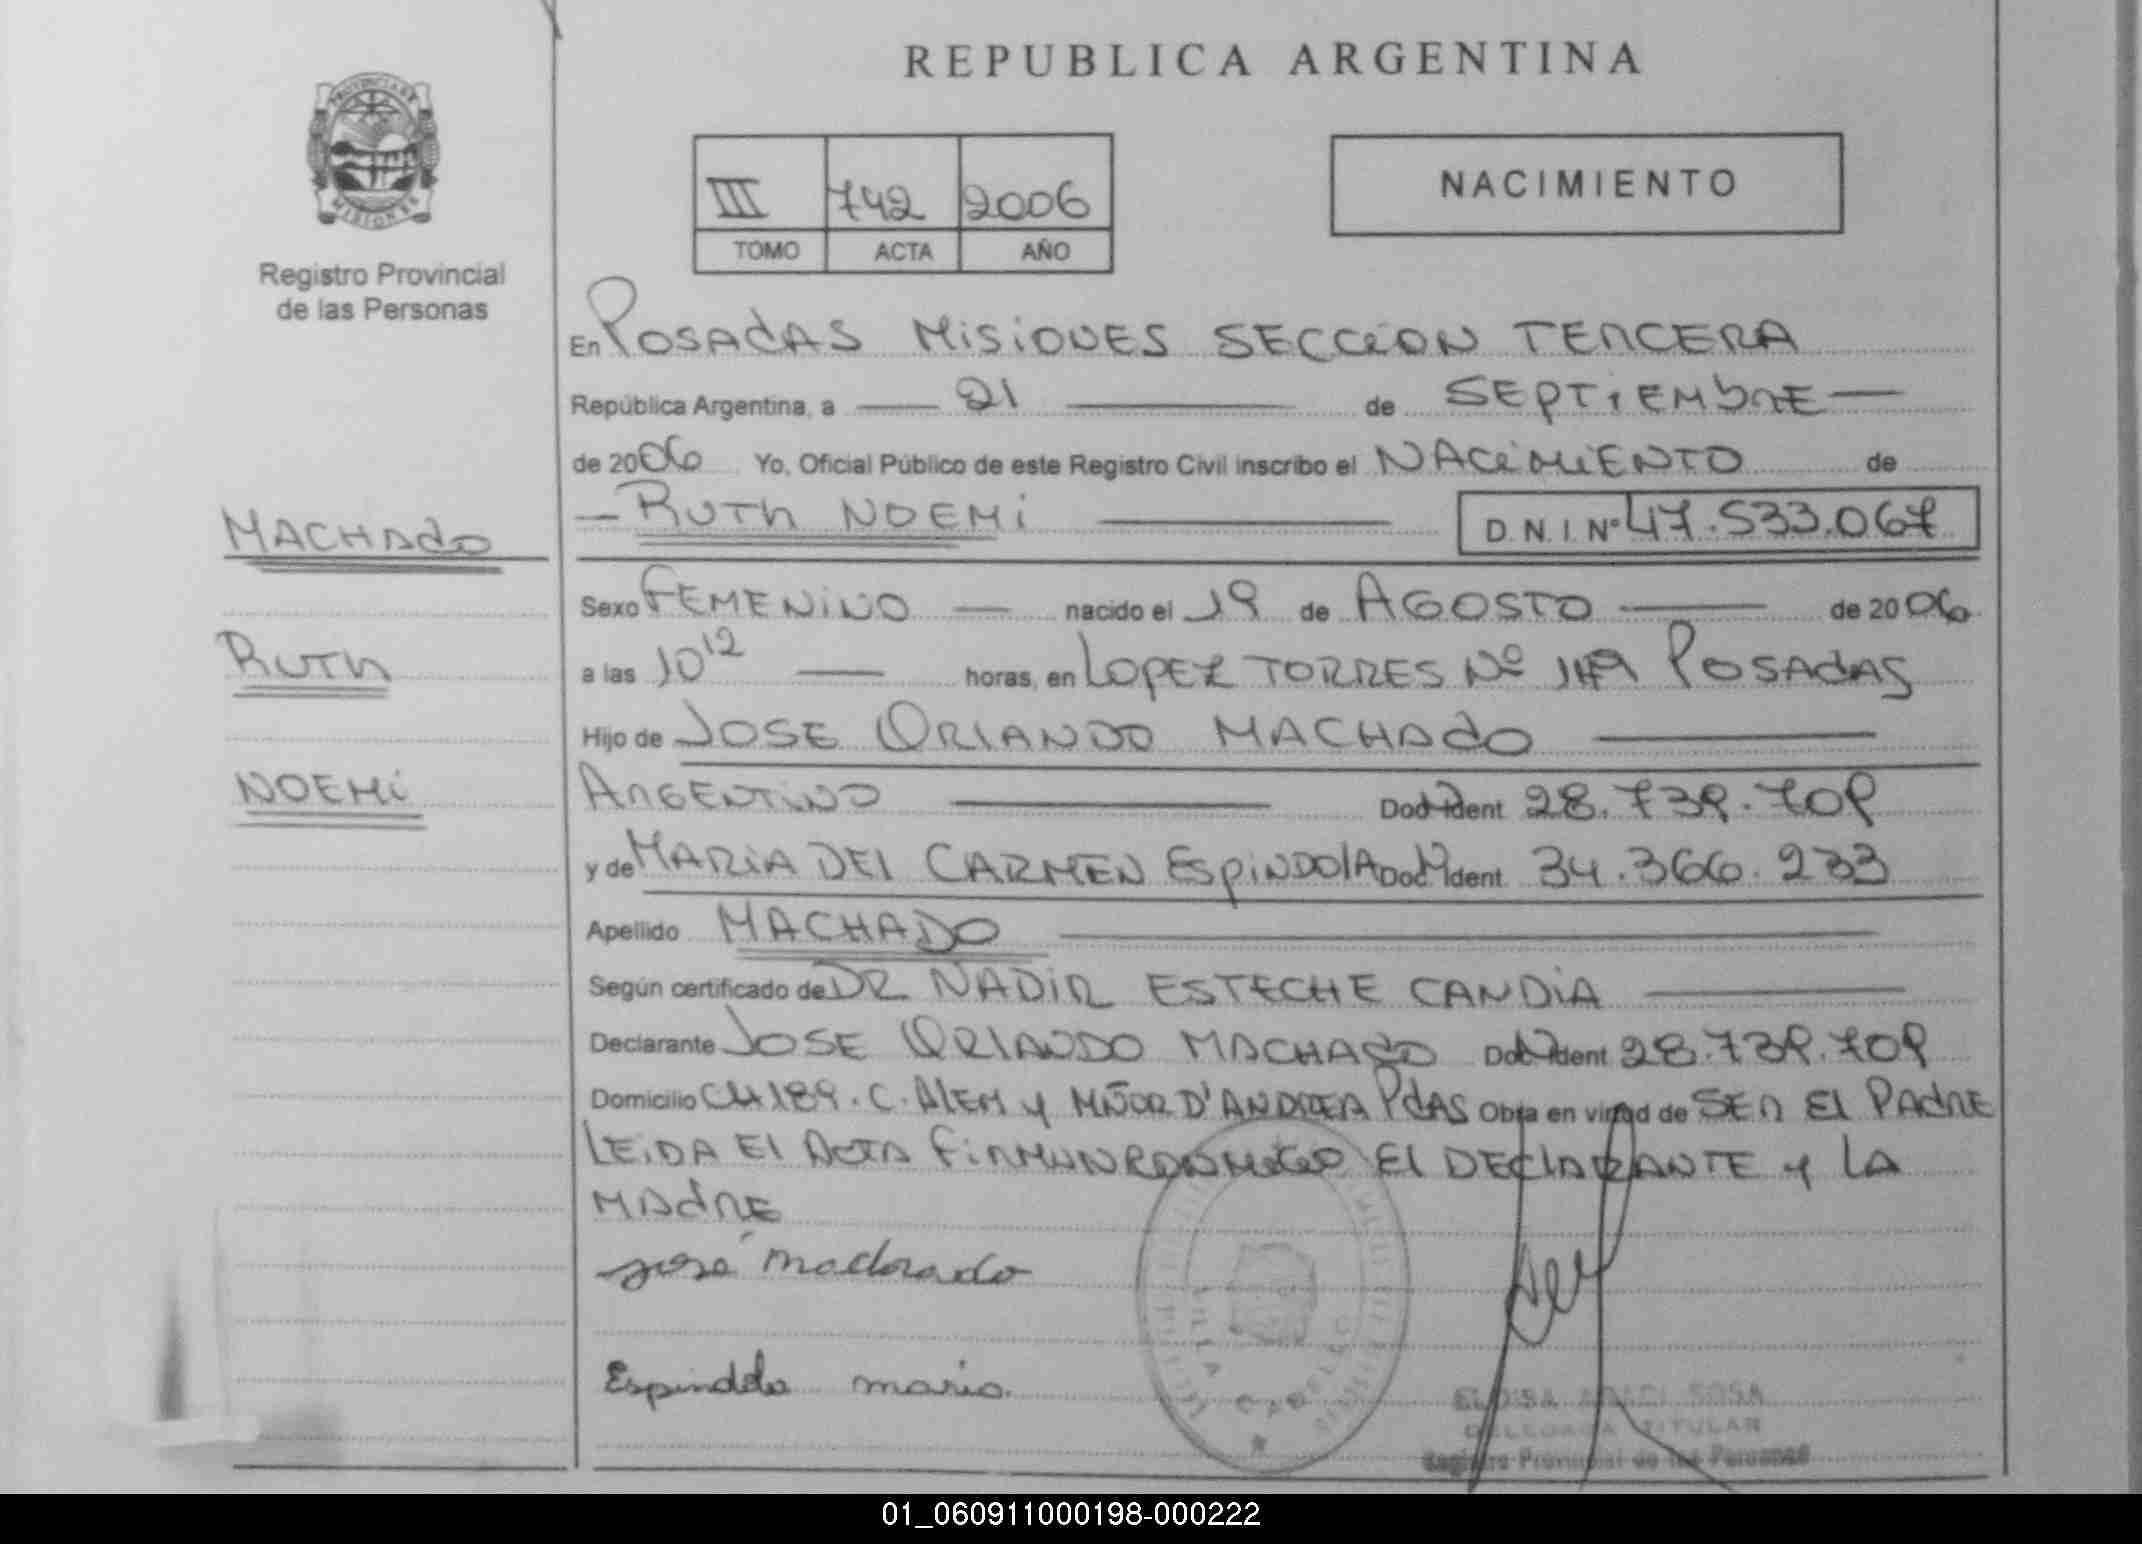 REPUBLICA ARGENTINA
PROVINCIA DE
MISIONES
Registro Provincial
de las Personas
III 742 2006
TOMO ACTA AÑO
NACIMIENTO
En POSADAS MISIONES SECCION TERCERA
República Argentina, a 21 de SEPTIEMBRE
de 2006 Yo, Oficial Público de este Registro Civil inscribo el NACIMIENTO de
RUTH NOEMI D.N.I. Nº 47.533.067
MACHADO
RUTH
NOEMI
Sexo FEMENINO nacido el 19 de AGOSTO de 2006
a las 10 12 horas, en LOPEZ TORRES Nº POSADAS
Hijo de JOSE ORLANDO MACHADO
ARGENTINO Doc. Ident. 28.739.709
y de MARIA DEL CARMEN ESPINDOLA Doc. Ident. 34.366.233
Apellido MACHADO
Según certificado de DR NADIR ESTECHE CANDIA
Declarante JOSE ORLANDO MACHADO Doc. Ident. 28.739.709
Domicilio CH 189. C. ALEM y D'ANDREA PdAS Obra en virtud de SER EL PADRE
LEIDA EL ACTA EL DECLARANTE y LA
MADRE
José machado
Espindola maria.
VILLA CABELLO
SOSA
DELEGADA TITULAR
Registro Provincial de las Personas
01_060911000198-000222